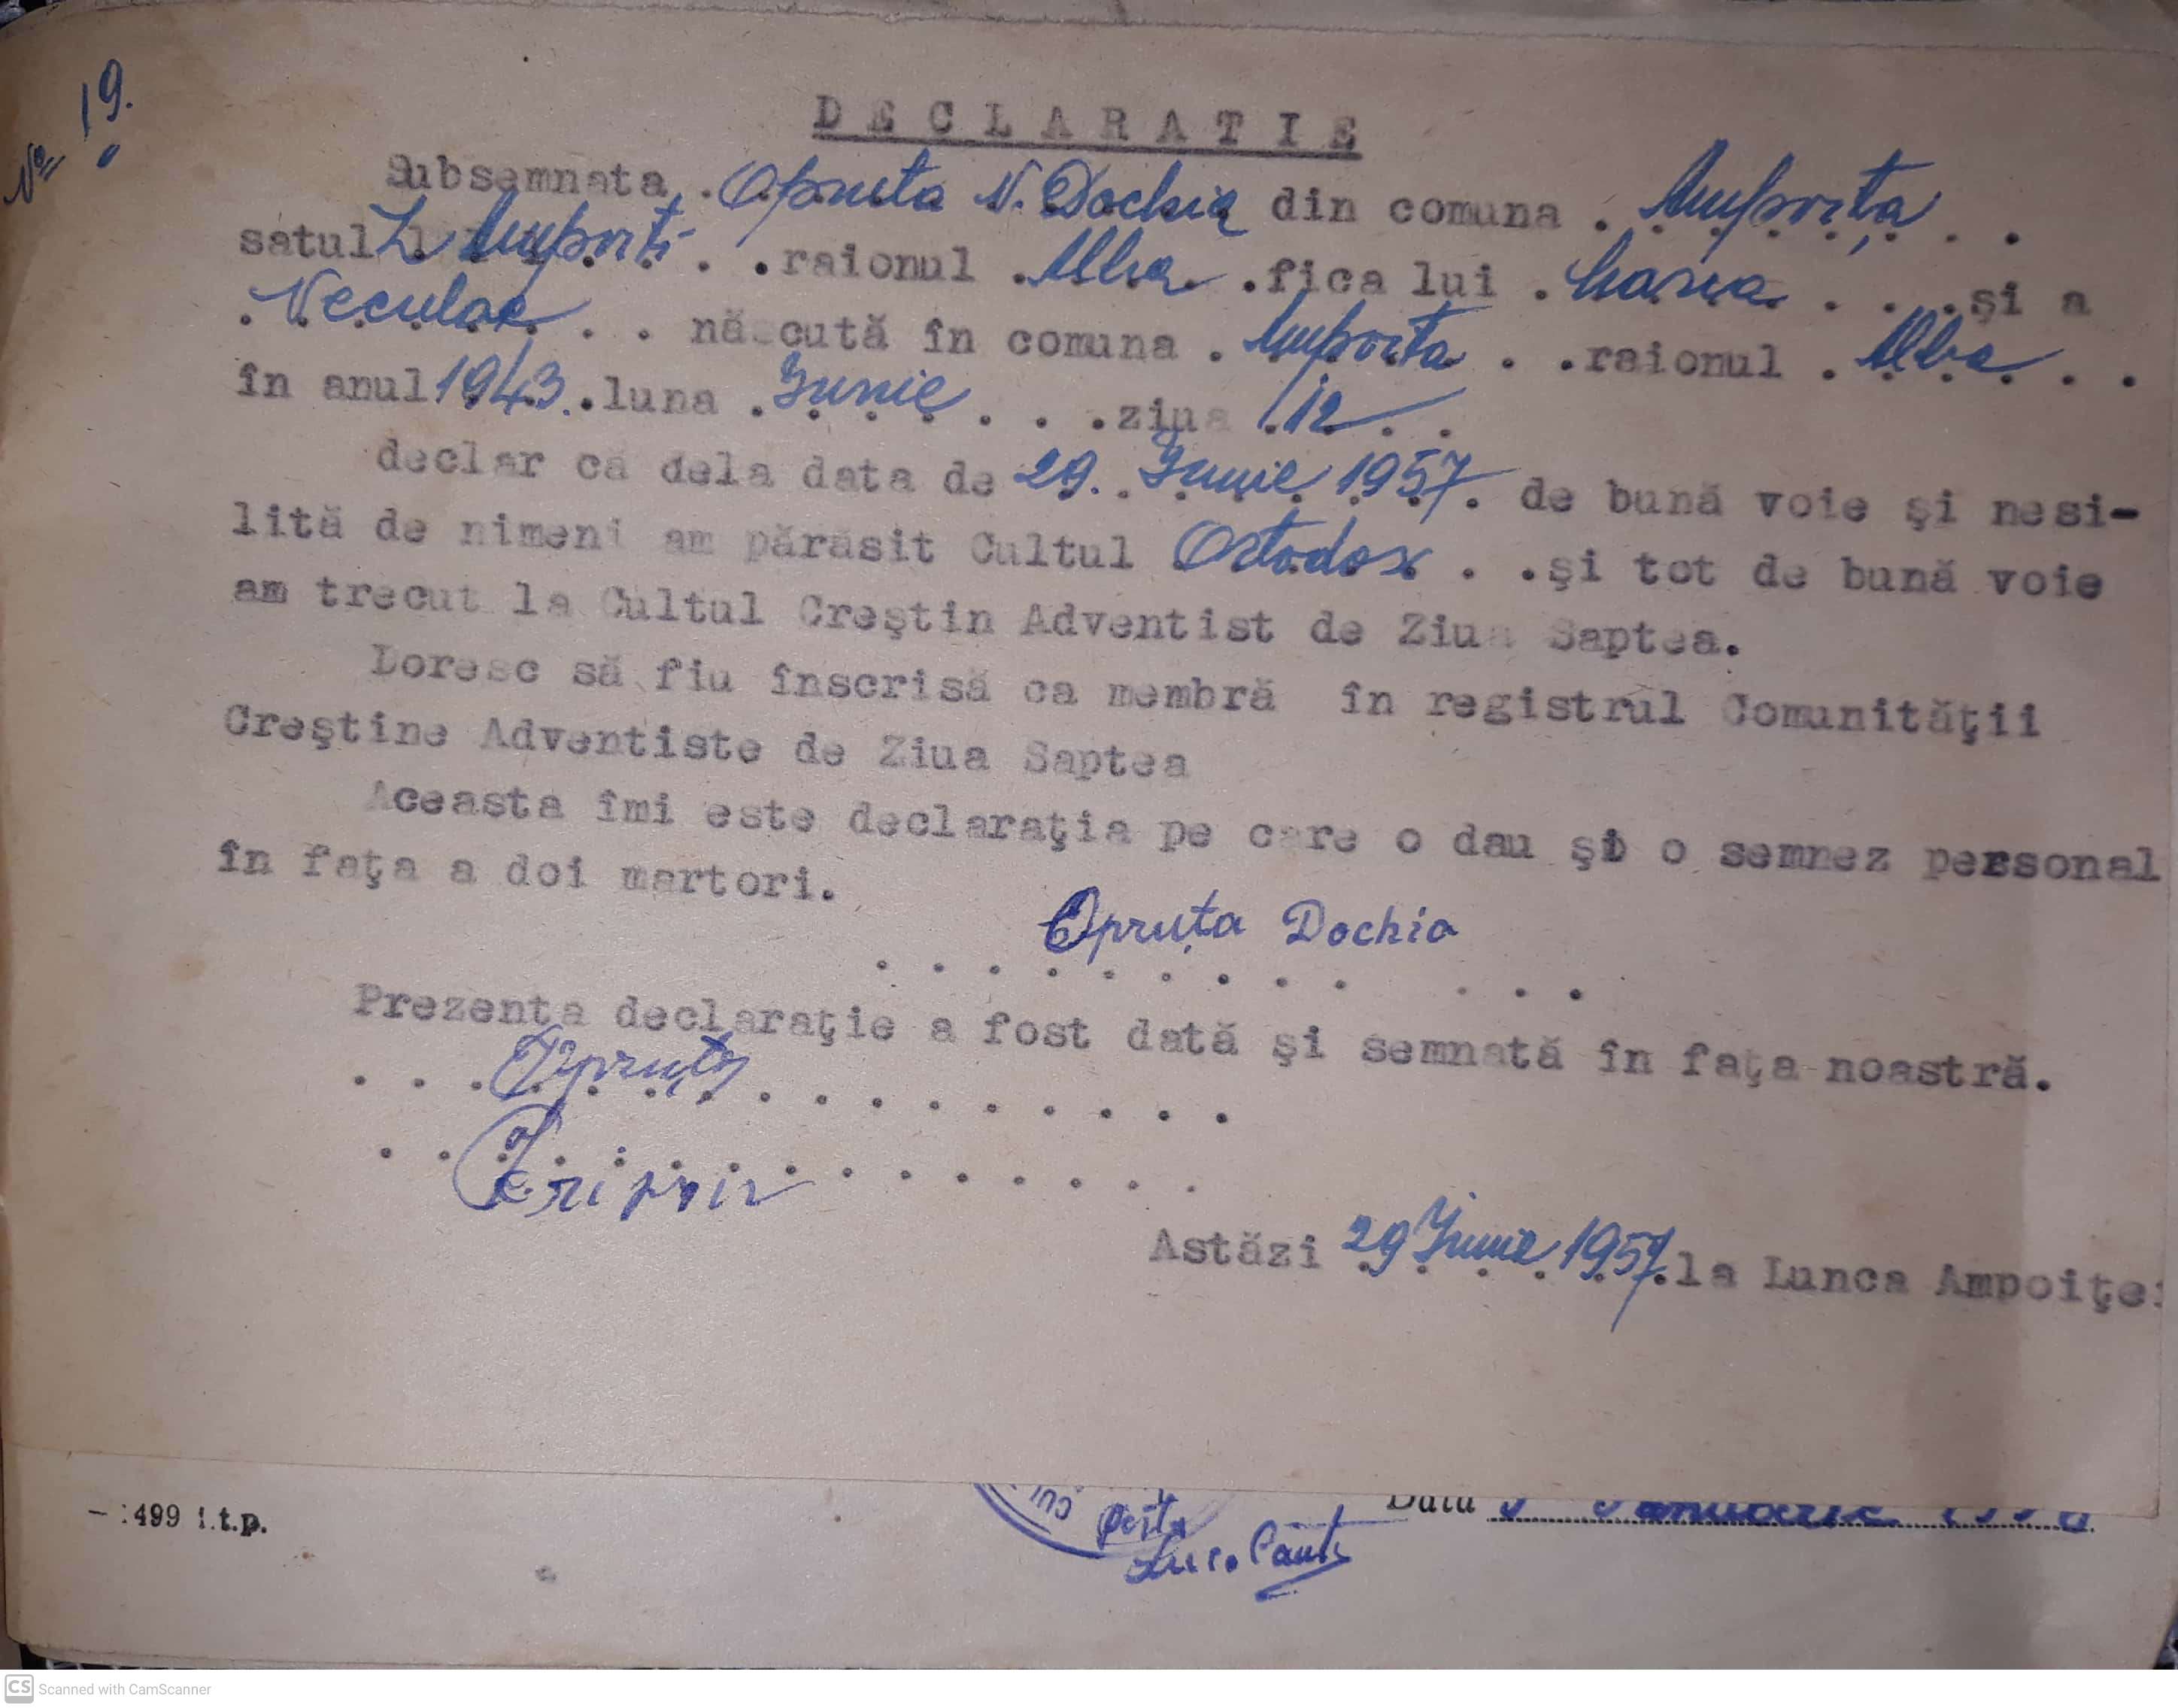 Nº 19.
DECLARATIE
Subsemnata Opruta N. Dochia din comuna Ampoița
satul L Ampoiti raionul Alba fica lui Maria și a
Neculae născută în comuna Ampoita raionul Alba
în anul 1943 luna Iunie ziua 12
declar ca dela data de 29. Iunie 1957. de bună voie şi nesi-
lită de nimeni am părăsit Cultul Ortodox . . şi tot de bună voie
am trecut la Cultul Creştin Adventist de Ziua Saptea.
Doresc să fiu înscrisă ca membră în registrul Comunităţii
Creştine Adventiste de Ziua Saptea
Aceasta îmi este declaraţia pe care o dau şi o semnez personal
în faţa a doi martori.
Opruța Dochia
Prezenta declaraţie a fost dată şi semnată în faţa noastră.
Opruța
Astăzi 29 Iunie 1957. la Lunca Ampoiţei
Data Ianuarie
499 i.t.p.
CS Scanned with CamScanner